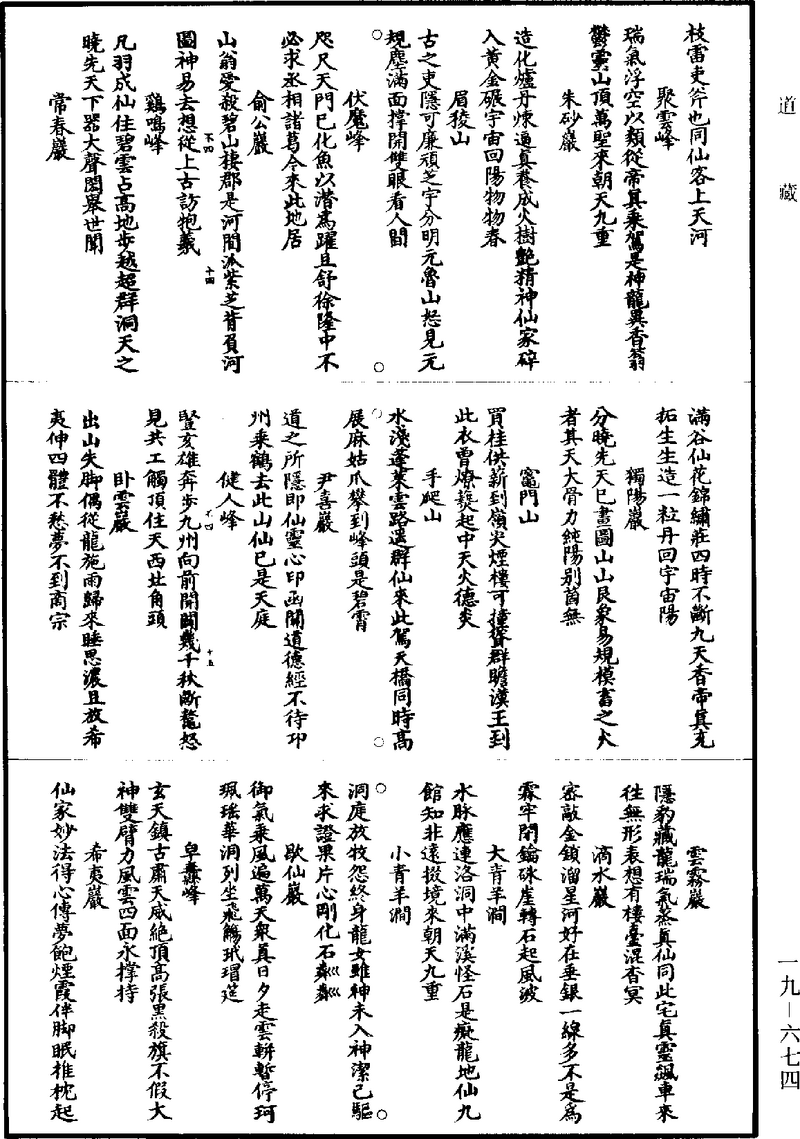 道藏
枝雷吏斧也同仙客上天河
聚雲峰
瑞氣浮空以類從帝真乘駕是神龍異香蓊
鬱雲山頂萬聖來朝天九重
朱砂巖
造化爐丹煉遍真養成火樹艷精神仙家碎
入黃金碾宇宙回陽物物春
眉㱥山
古之吏隱可廉頑芝宇分明元魯山怒見元
規塵滿面撑開雙眼看人間
伏魔峰
咫尺天門已化魚以潛爲躍且舒徐隆中不
必求丞相諸葛今來此地居
俞公巖
山翁愛殺碧山棲郡是河間派紫芝背負河
圖神易去想從上古訪犧羲
雞鳴峰
凡羽成仙住碧雲占高地步越超群洞天之
曉先天下器大聲閎舉世聞
常春巖
滿谷仙花錦繡莊四時不斷九天香帝真充
拓生生造一粒丹回宇宙陽
獨陽巖
分曉先天已畫圖山山艮象易規模畜之火
者其天大骨力純陽別菌無
竈門山
買桂供薪到嶺尖煙樓可撞聳群瞻漢王到
此衣曹燎爇起中天火德炎
手爬山
水淺蓬萊雲路遙群仙來此駕天橋同時高
展麻姑爪攀到峰頭是碧霄
尹喜巖
道之所隱即仙靈心印函關道德經不待邛
州乘鶴去此山仙已是天庭
健人峰
豎亥雄奔步九州向前開闢幾千秋斷鼇怒
見共工觸頂住天西北角頭
卧雲巖
出山失脚偶從龍施雨歸來睡思濃且放希
夷伸四體不愁夢不到商宗
雲霧巖
隱豹藏龍瑞氣蒸真仙同此宅真靈飆車來
往無形表想有樓臺混杳冥
滴水巖
密敲金鎖溜星河好在垂銀一線多不是爲
霖牢閉鑰硃崖轉石起風波
大青羊澗
水脉應連洛洞中滿溪怪石是癡龍地仙九
館知非遠掇境來朝天九重
小青羊澗
洞庭放牧怨終身龍女雖神未入神潔己驅
來求證果片心剛化石粼粼
歇仙巖
御氣乘風遍萬天衆真日夕走雲軿暫停珂
珮瑤華洞列坐飛觴玳瑁筵
皁纛峰
玄天鎮古肅天威絕頂高張黑殺旗不假大
神雙臂力風雲四面永撑持
希夷巖
仙家妙法得心傳夢飽煙霞伴脚眠推枕起
一九—六七四